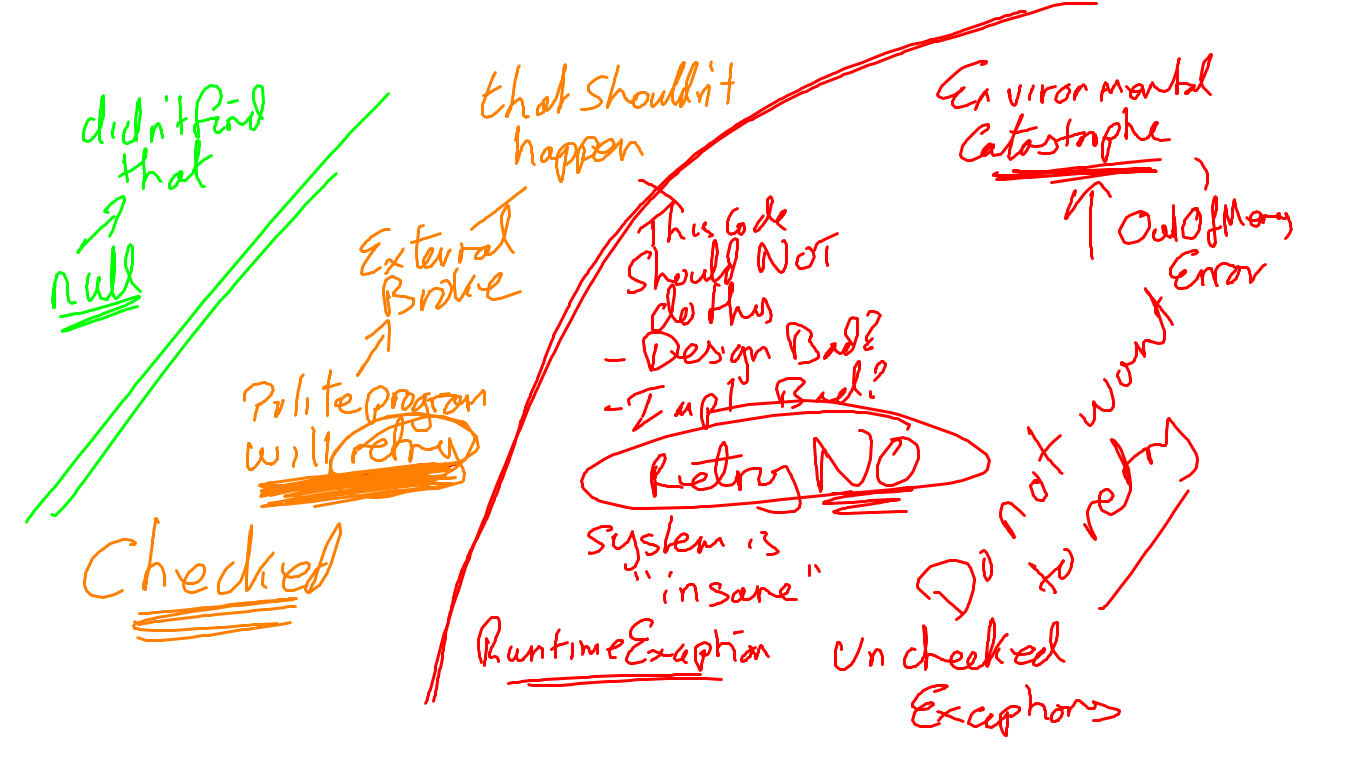 didn't find
that
null
that shouldn't
happen
External
Broke
Polite program
will retry
Checked
This code
Should NOT
do this
- Design Bad?
- Impl Bad?
Retry NO
system is
"insane"
RuntimeException
Environmental
Catastrophe
OutOfMemory
Error
Do not want
to retry
Unchecked
Exceptions